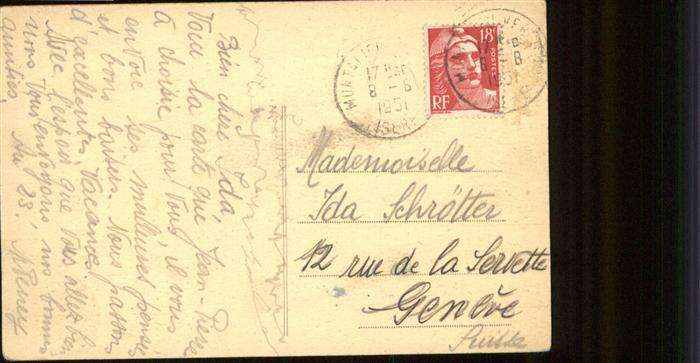 Bien chère Ida,
Voici la carte que Jean-Pierre
a choisie pour Vous, il vous
envoie ses meilleures pensées
et bons baisers. Nous passons
d'excellentes Vacances.
Avec l'espoir que Vous allez bien
nous Vous envoyons nos bonnes
amitiés.
Au 23!
18F
POSTES
RF
17 H
8 - 8
1951
ISERE
Mademoiselle
Ida Schrötter
12 rue de la Servette
Genève
Suisse